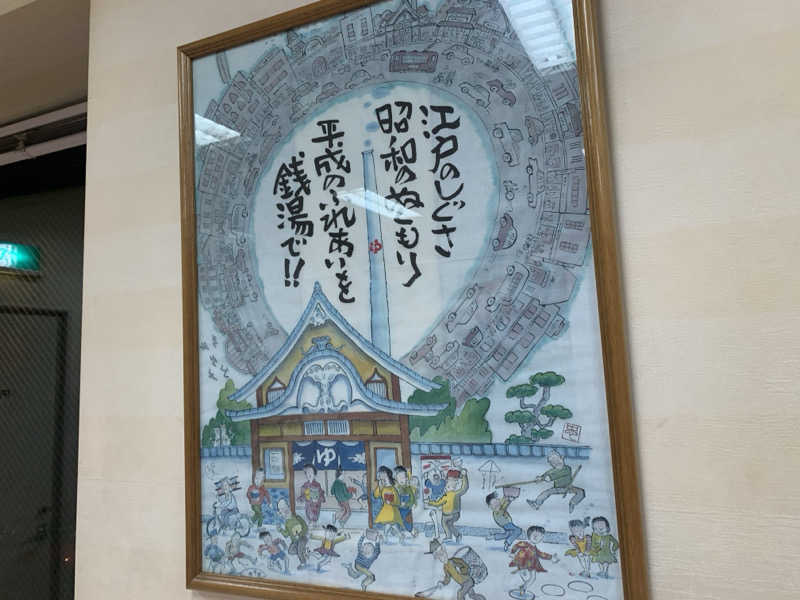 江戸のしぐさ
昭和のぬくもり
平成のふれあいを
銭湯で!!
ゆ
ゆ